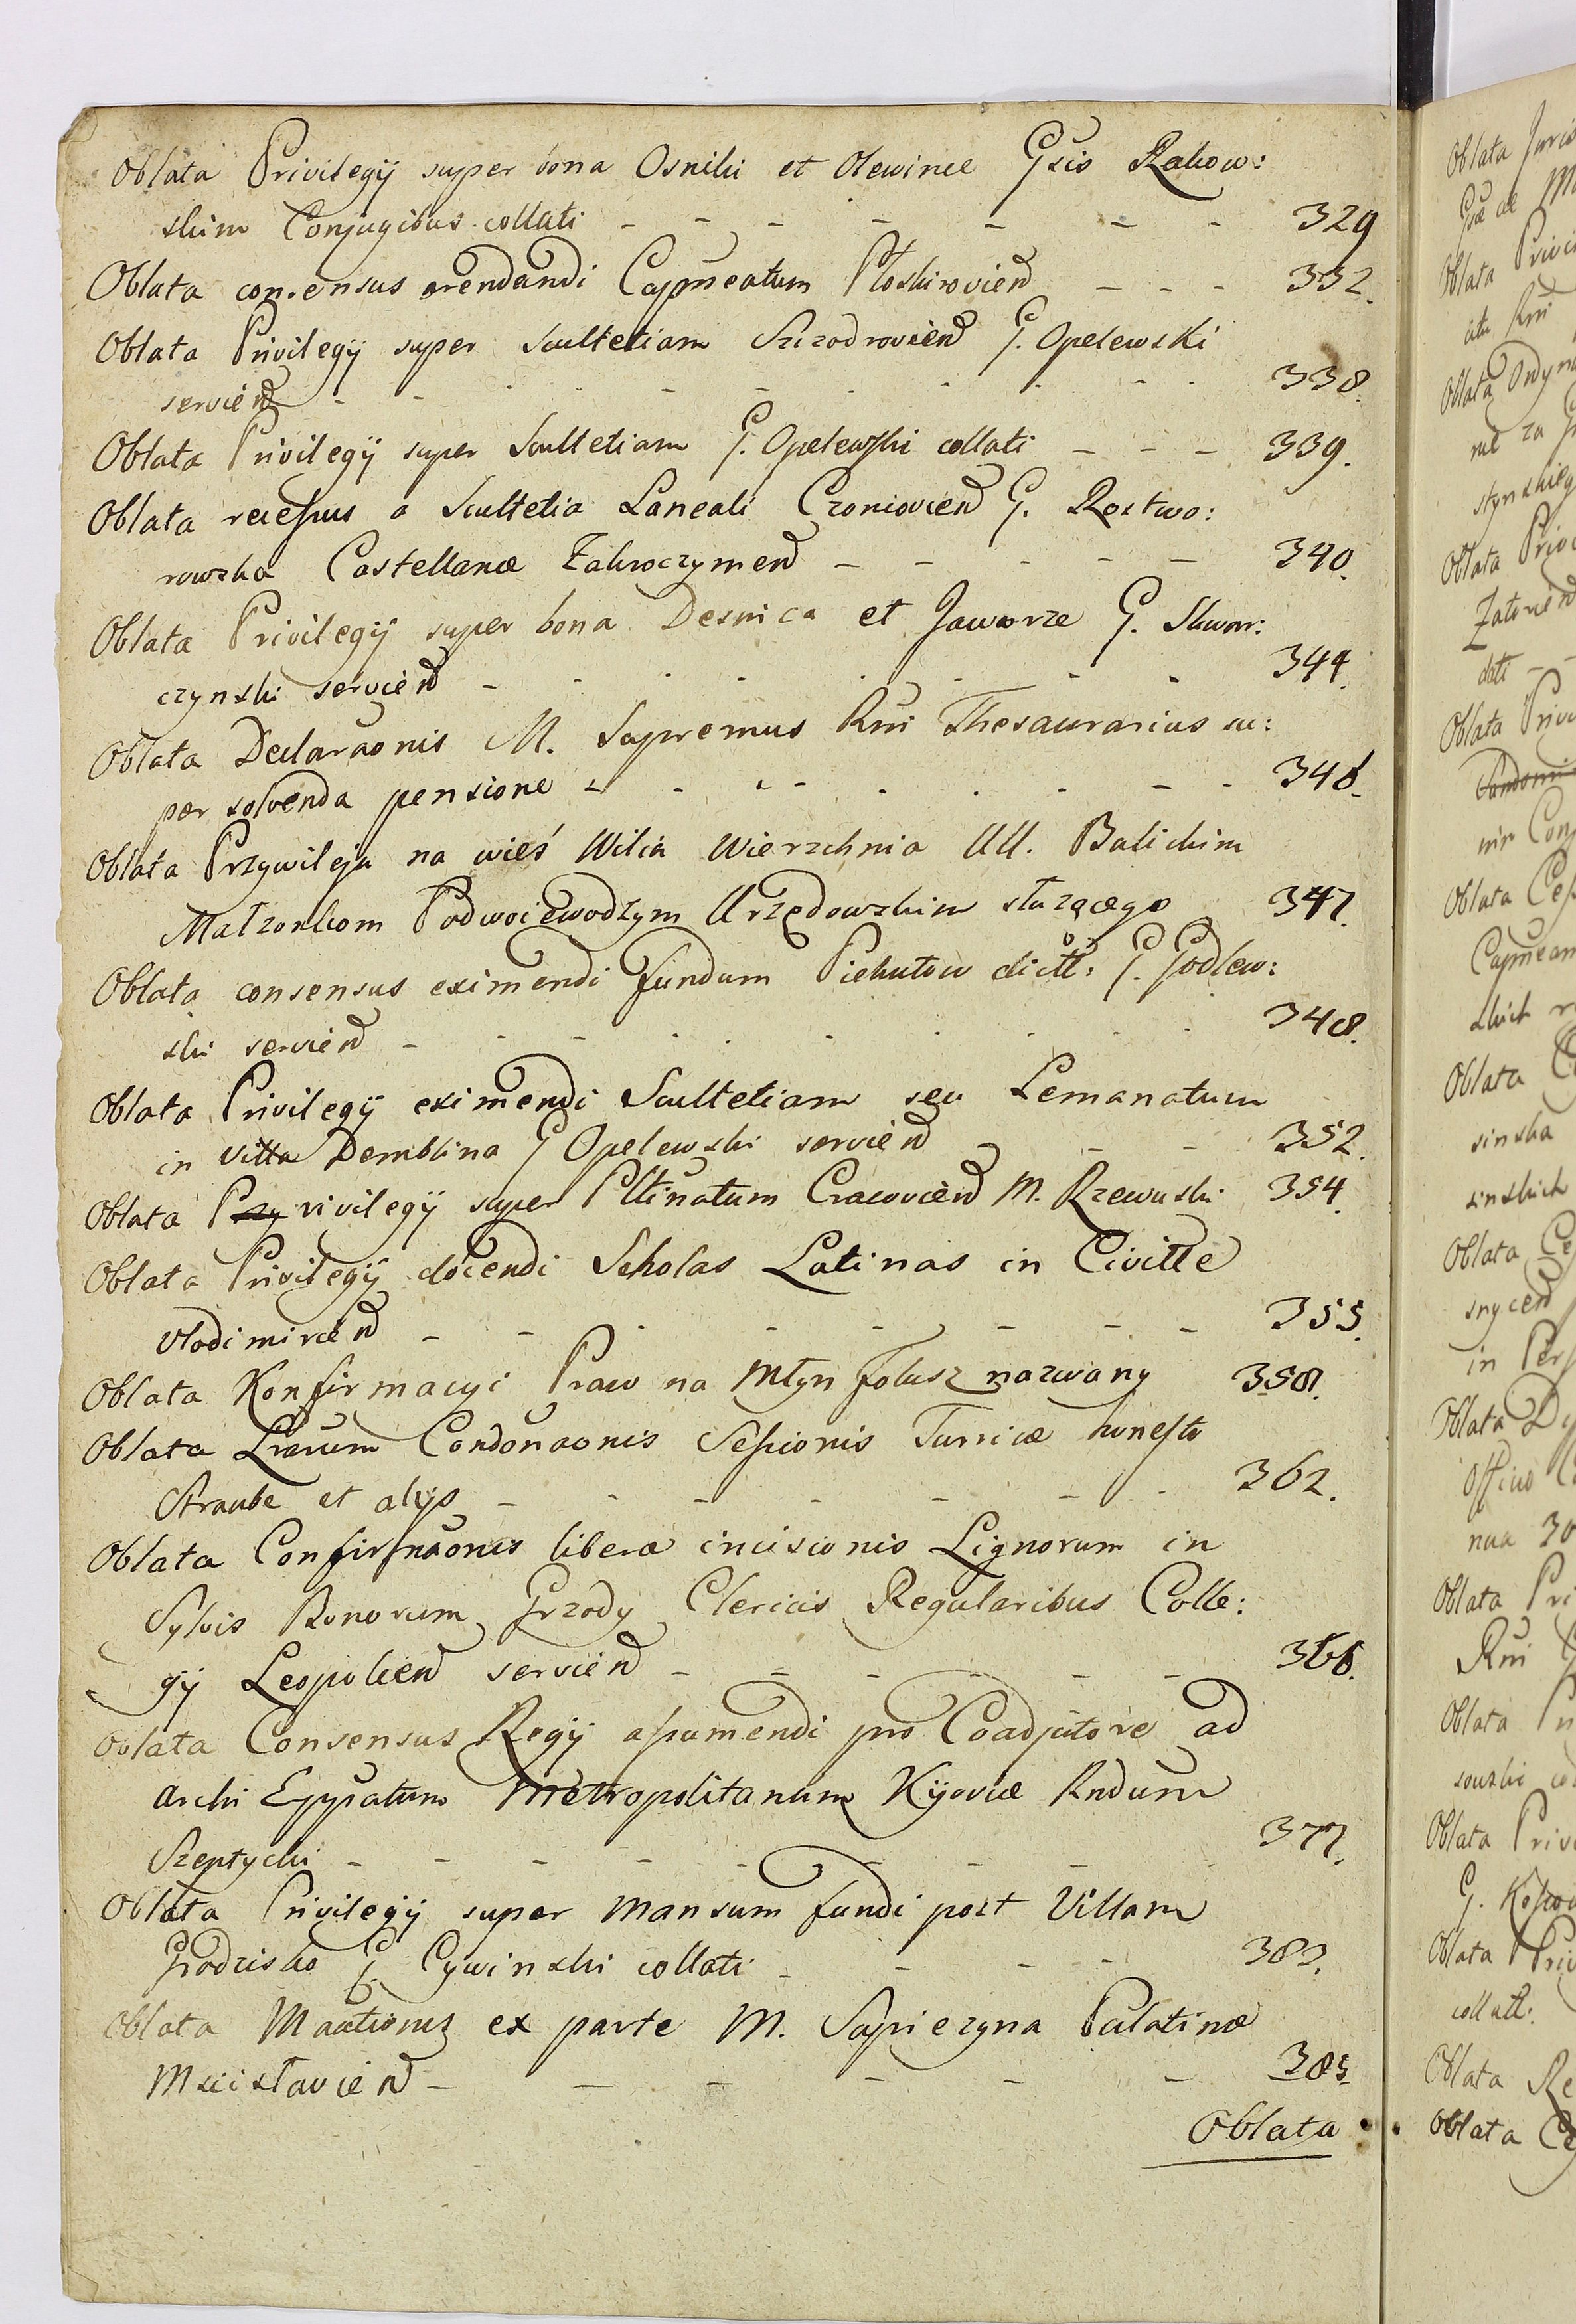 Oblata Privilegij super bona Osniki et Olewince Gsis Rakow:
skim Conjugibus collati - - - - - - - 329
Oblata consensus arendandi Capneatum Płoskirovien - - - 332.
Oblata Privilegij super Scultetiam Szczodrovien G. Opelewski
servien - - - - - - - - - 338.
Oblata Privilegij super Scultetiam G. Opelewski collati - - - 339.
Oblata recessus a Scultetia Laneali Croniovien G. Roztwo:
rowska Castellanæ Zakroczymen - - - - - 340.
Oblata Privilegij super bona Desnica et Jaworze G. Skwar:
czynski servien - - - - - - - - 344.
Oblata Declaraonis M. Supremus Rni Thesaurarius su:
per solvenda pensione - - - - - - - - 346.
Oblata Przywileja na wieś Wilia Wierzchnia UU. Balickim
Małzonkom Podwoiewodzym Urzędowskim słuzącego 347.
Oblata consensus eximendi fundum Piekutow dictt: G. Godlew:
ski servien - - - - - - - - 348.
Oblata Privilegij eximendi Scultetiam seu Lemanatum
in Villa Demblina G Opelewski servien - - - 352.
Oblata Przyrivilegij super Pltinatum Cracovien M. Rzewuski 354.
Oblata Privilegij docendi Scholas Latinas in Civitte
Vlodimirien - - - - - - - - 355.
Oblata Konfirmacyi Praw na Młyn Folusz nazwany 358.
Oblata Lrarum Condonaonis Sessionis Turricæ honesto
Straube et alijs - - - - - - - 362.
Oblata Confirmaonis liberæ incisionis Lignorum in
Sylvis Bonorum Grzody Clericis Regularibus Colle:
gij Leopolien servien - - - - - - 366.
Oblata Consensus Regij assumendi pro Coadjutore ad
Archi Eppatum Metropolitanum Kijoviæ Rndum
Szeptycki - - - - - - - - 377.
Oblata Privilegij super Mansum fundi post Villam
Grodzisko G. Cywinski collati - - - - 383.
Oblata Maationis ex parte M. Sapiezyna Palatinæ
Mscisłavien - - - - - - - 385.
Oblata
Oblata Juris
Oblata
Oblata
Oblata
Oblata
Oblata
Capnean
Oblata
sinska
sinskich
Oblata
in
Oblata
nua 30
Oblata
Rni
Oblata
Oblata
G.
Oblata
collatt:
Oblata
Oblata